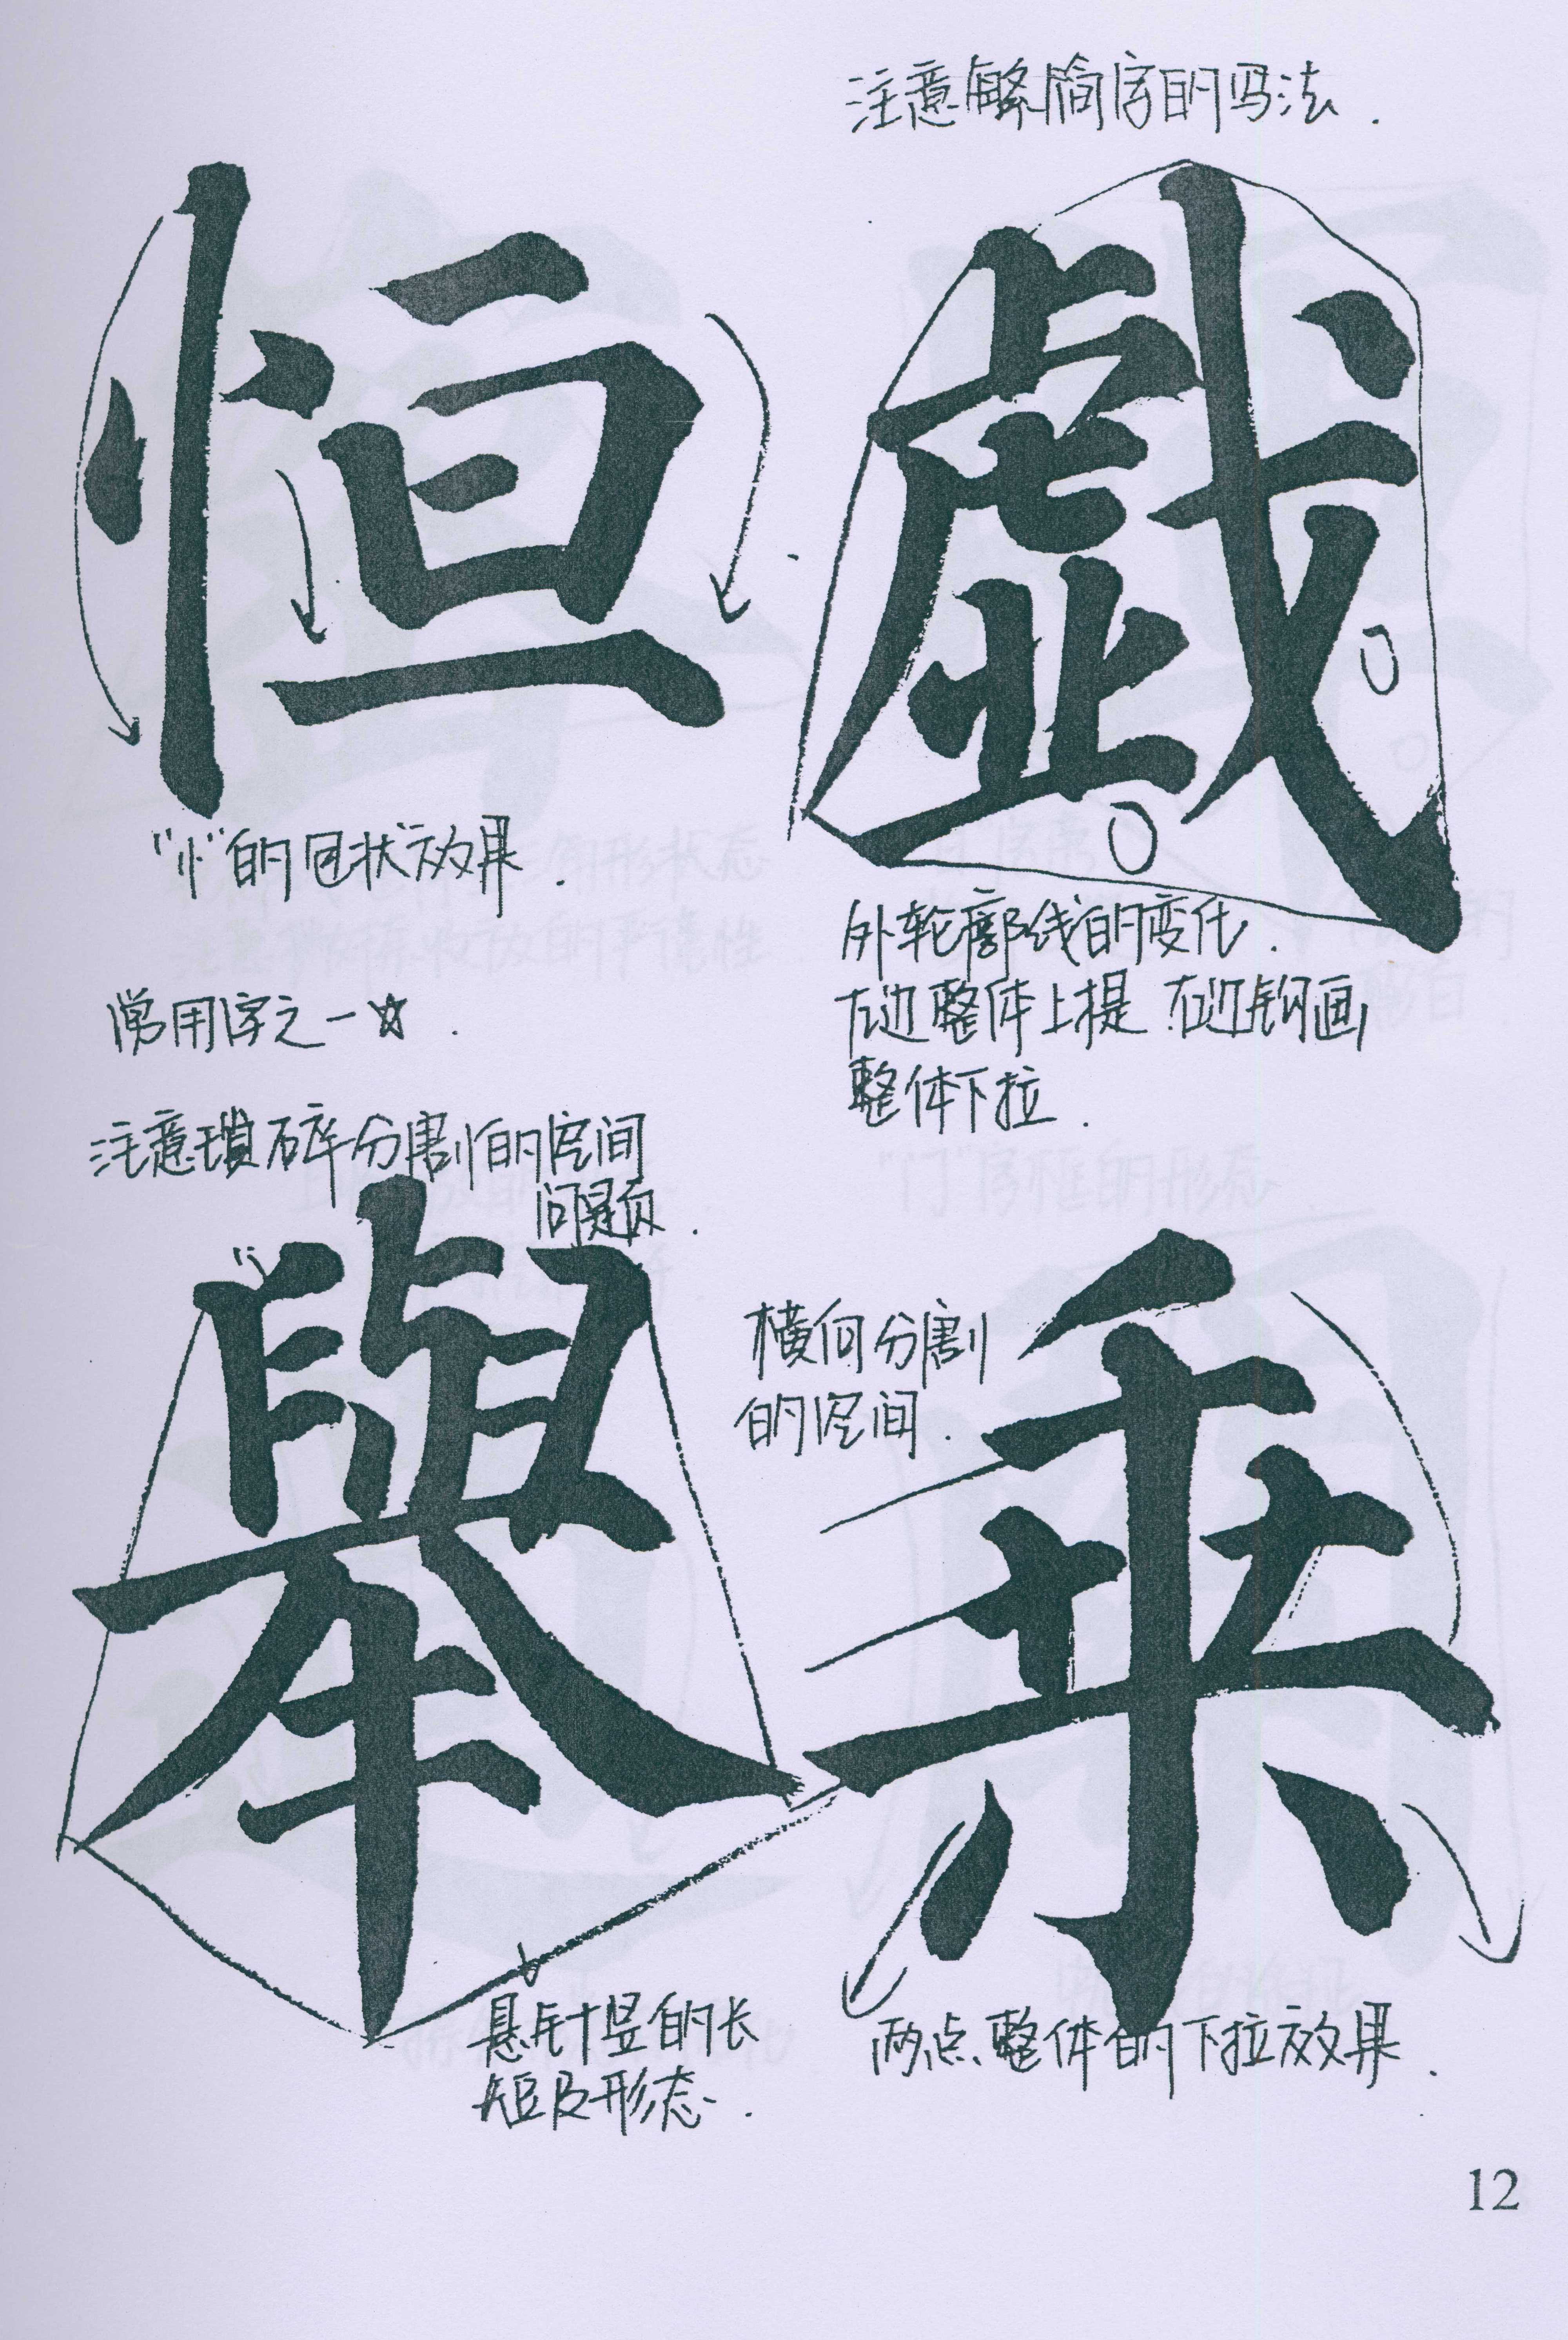 注意繁简字的写法.
恒
戯
"忄"的包状效果.
常用字之一☆.
外轮廓线的变化.
左边整体上提 右边钩画
整体下拉.
注意琐碎分割的空间
问题.
舉
乘
横向分割
的空间.
悬针竖的长
短及形态.
两点整体的下拉效果.
12